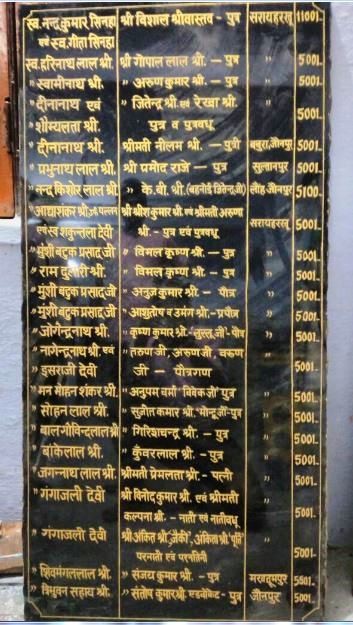 स्व. नन्द कुमार सिनहा श्री विशाल श्रीवास्तव - पुत्र सरायहरखू 11001.
एवं स्व. गीता सिनहा
स्व. हरिनाथ लाल श्री. श्री गोपाल लाल श्री. - पुत्र " 5001.
" स्वामीनाथ श्री. " अरुण कुमार श्री. - पुत्र " 5001.
" दीनानाथ एवं " जितेन्द्र श्री. एवं रेखा श्री. " 5001.
" शौम्यलता श्री. पुत्र व पुत्रवधू
" दीनानाथ श्री. श्रीमती नीलम श्री. - पुत्री बबुरा, जौनपुर 5001.
" प्रभुनाथ लाल श्री. श्री प्रमोद राजे - पुत्र सुल्तानपुर 5001.
" नन्द किशोर लाल श्री. " के. वी. श्री. (बहनोई जितेन्द्र जी) लीह जौनपुर 5100.
" आद्याशंकर श्री. श्री श्रीश कुमार श्री. एवं श्रीमती अरुणा सरायहरखू 5001.
एवं स्व शकुन्तला देवी श्री. - पुत्र एवं पुत्रवधू
" मुंशी बटुक प्रसाद जी " विमल कृष्ण श्री. - पुत्र " 5001.
" राम दुलारी श्री. " विमल कृष्ण श्री. - पुत्र " 5001.
" मुंशी बटुक प्रसाद जी " अनुज कुमार श्री. - पौत्र " 5001.
" मुंशी बटुक प्रसाद जी " आशुतोष व उमंग श्री. - प्रपौत्र " 5001.
" जोगेन्द्रनाथ श्री. " कृष्ण कुमार श्री. - "लुल्लू जी" - पौत्र " 5001.
" नागेन्द्रनाथ श्री. एवं " तरुण जी, अरुण जी, वरुण " 5001.
" इसराजी देवी जी - पौत्रगण
" मन मोहन शंकर श्री. " अनुपम वर्मा "विवेक जी" पुत्र " 5001.
" सोहन लाल श्री. " सुजीत कुमार श्री. "मोन्टू जी" - पुत्र " 5001.
" बाल गोविन्द लाल श्री. " गिरिशचन्द्र श्री. - पुत्र " 5001.
" बांके लाल श्री. " कुँवर लाल श्री. - पुत्र " 5001.
" जगन्नाथ लाल श्री. श्रीमती प्रेमलता श्री. - पत्नी " 5001.
" गंगाजली देवी श्री विनोद कुमार श्री. एवं श्रीमती " 5001.
कल्पना श्री. - नाती एवं नातीवधू
" गंगाजली देवी श्री अंकित श्री. "जैकी", अंकिता श्री. " 5001.
परनाती एवं परनातिनी
" शिवमंगल लाल श्री. " संजय कुमार श्री. - पुत्र मखदूमपुर 5501.
" त्रिभुवन सहाय श्री. " संतोष कुमार श्री. एडवोकेट - पुत्र जौनपुर 5001.